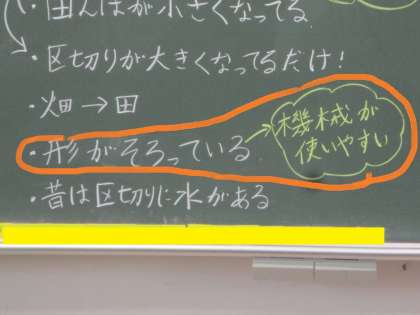 ・田んぼが小さくなってる
・区切りが大きくなってるだけ！
・畑→田
・形がそろっている→
機械が
使いやすい
・昔は区切りに水がある